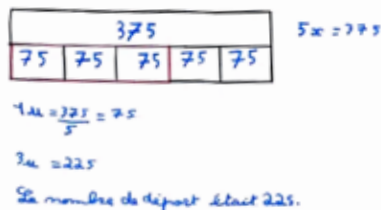 375
5x = 375
75 75 75 75 75
1u = 375/5 = 75
3u = 225
Le nombre de départ était 225.